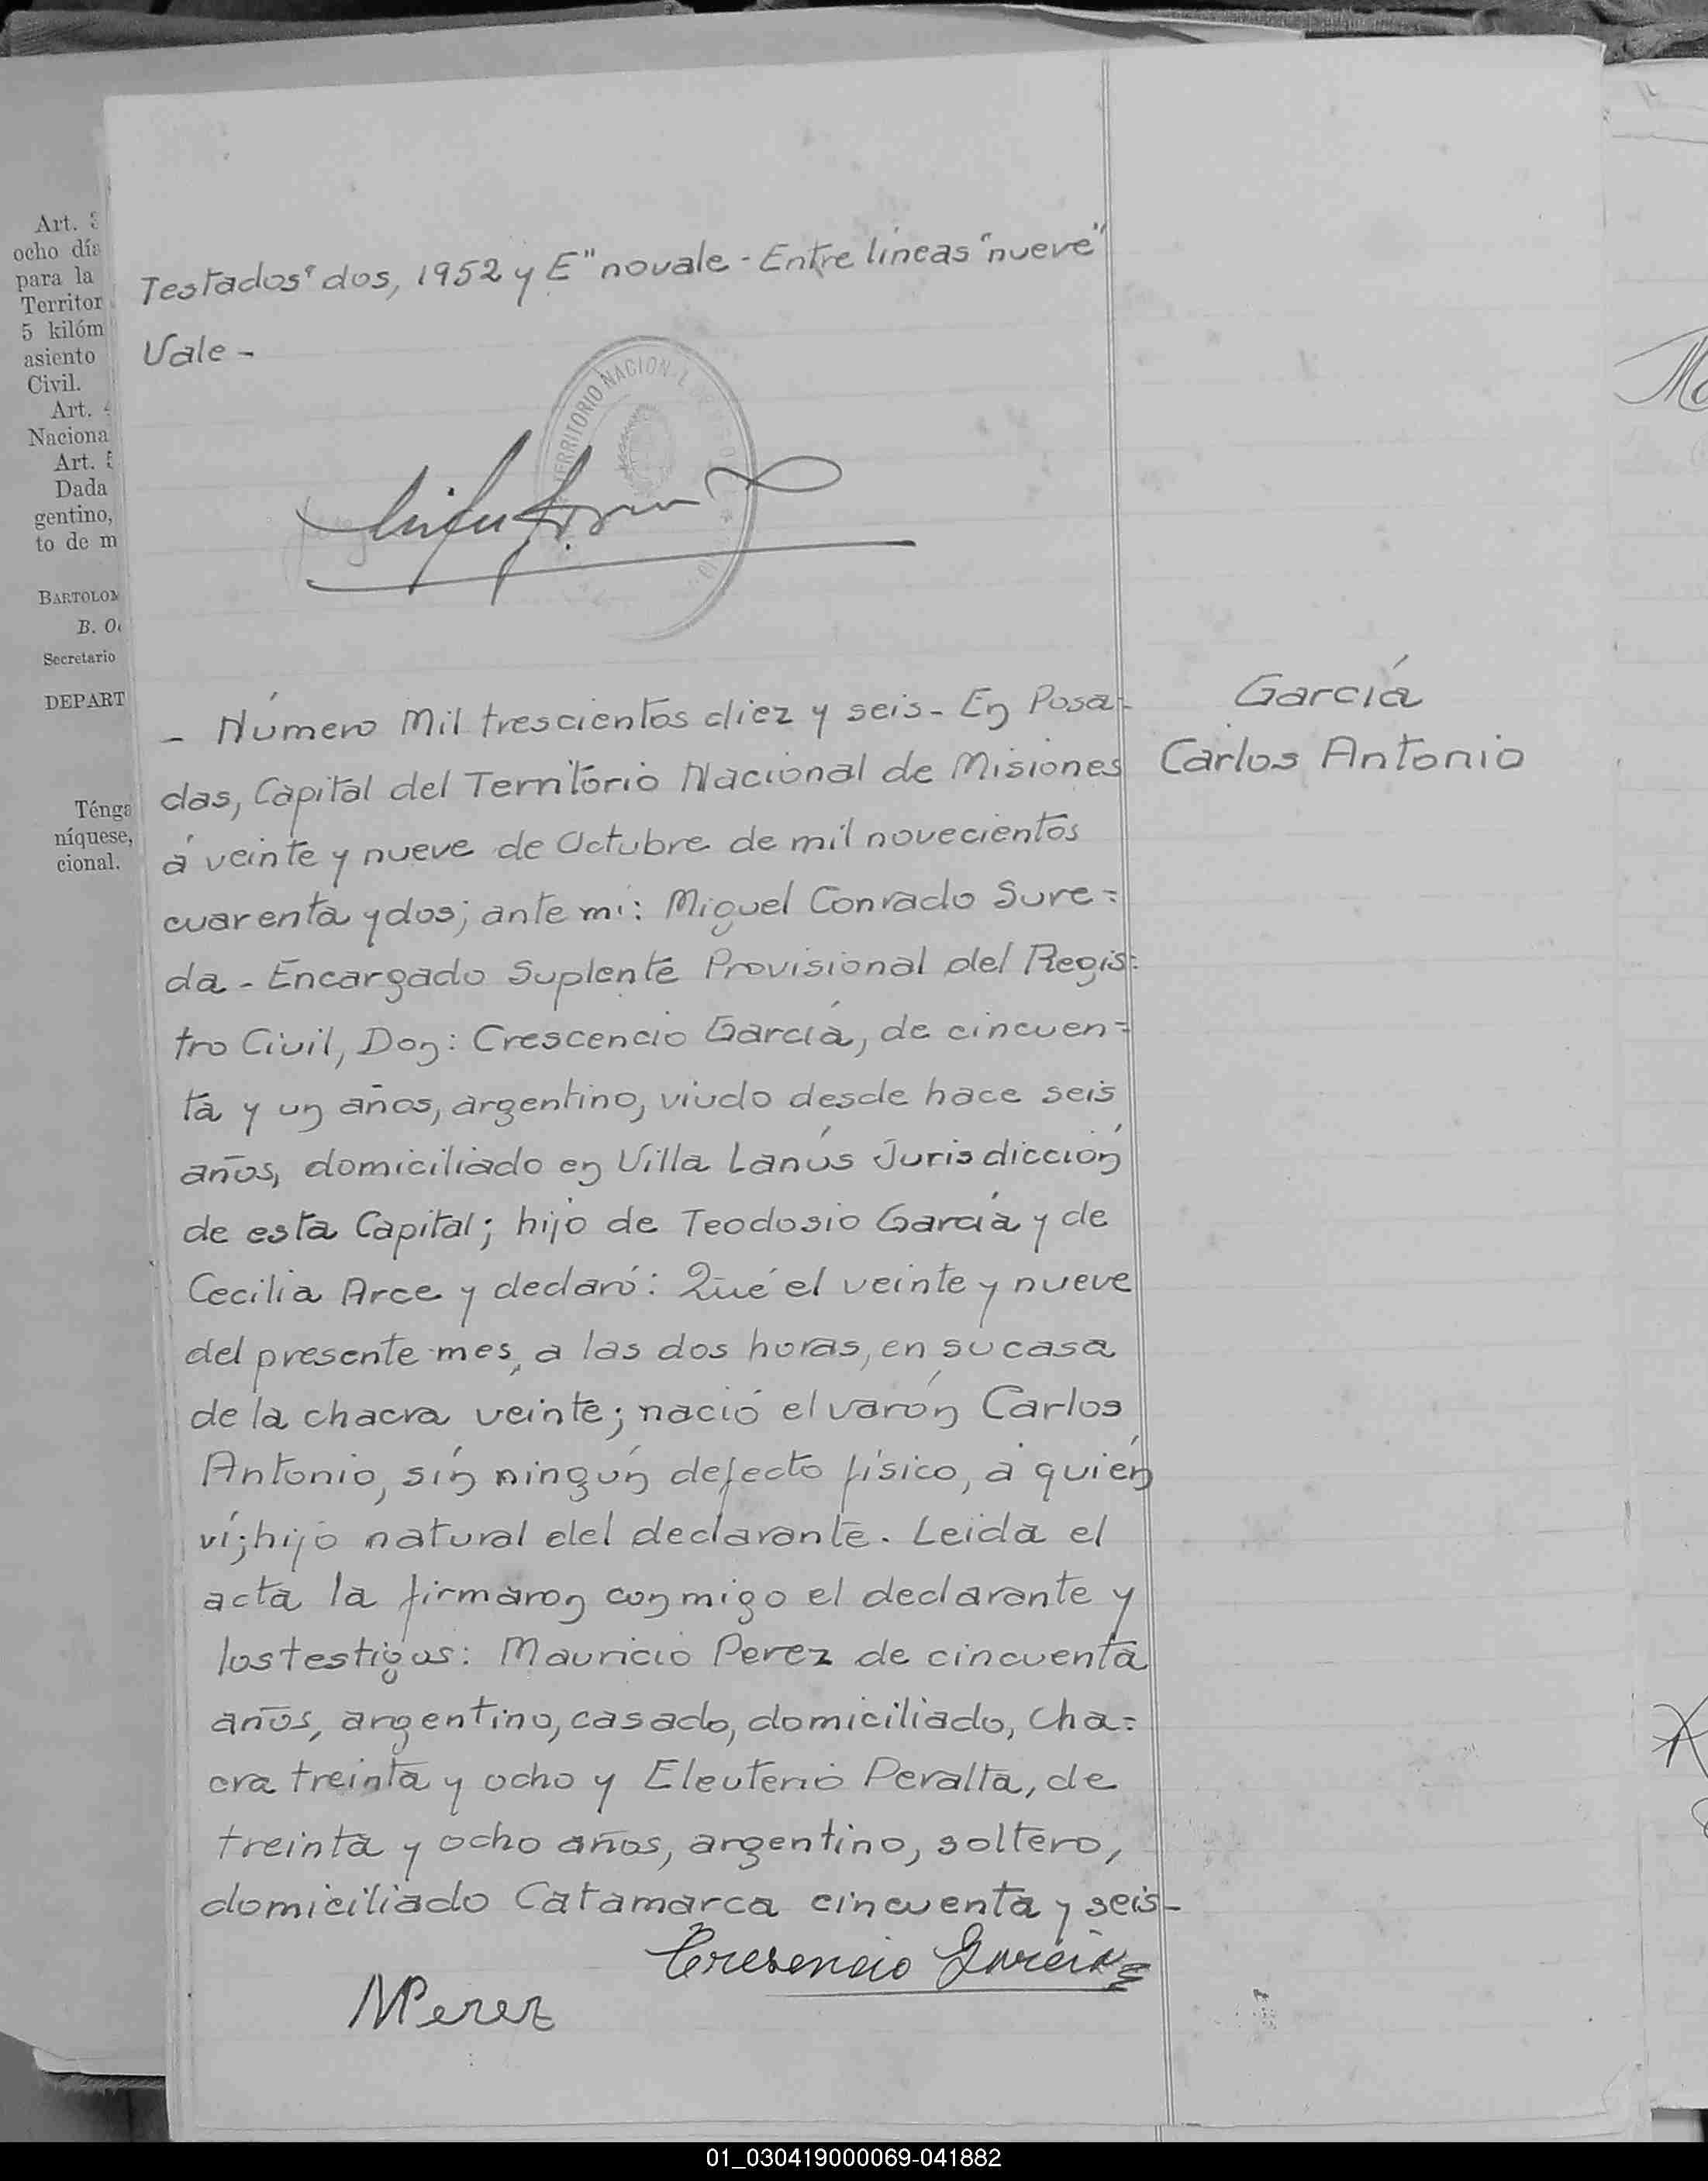 Art. 3
ocho día
para la
Territor
5 kilóm
asiento
Civil.
Art. 4
Naciona
Art. 5
Dada
gentino,
to de m
BARTOLOM
B. Oc
Secretario
DEPART
Ténga
níquese,
cional.
Testados "dos, 1952 y E" no vale - Entre líneas "nueve"
Vale -
TERRITORIO NACIONAL
- Número Mil trescientos diez y seis - En Posa-
das, Capital del Territorio Nacional de Misiones
á veinte y nueve de Octubre de mil novecientos
cuarenta y dos; ante mi: Miguel Conrado Sure=
da - Encargado Suplente Provisional del Regis=
tro Civil, Don: Crescencio García, de cincuen=
ta y un años, argentino, viudo desde hace seis
años, domiciliado en Villa Lanús Jurisdicción
de esta Capital; hijo de Teodosio García y de
Cecilia Arce y declaró: Qué el veinte y nueve
del presente mes, a las dos horas, en su casa
de la chacra veinte; nació el varón Carlos
Antonio, sín ningún defecto físico, a quién
ví; hijo natural del declarante. Leida el
acta la firmaron conmigo el declarante y
los testigos: Mauricio Perez de cincuenta
años, argentino, casado, domiciliado, Cha=
cra treinta y ocho y Eleuterio Peralta, de
treinta y ocho años, argentino, soltero,
domiciliado Catamarca cincuenta y seis-
Cresencio García
MPerez
García
Carlos Antonio
01_030419000069-041882